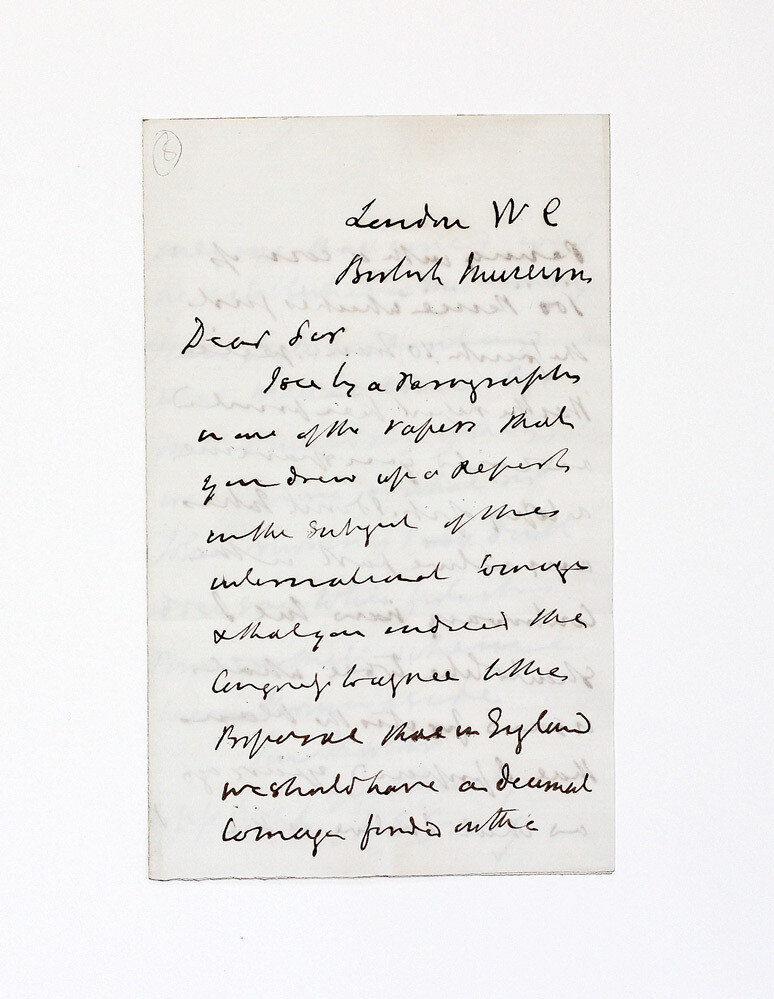 8
London W C
British Museum
Dear Sir
I see by a Paragraph
in one of the Papers that
you drew up a Report
on the Subject of the
international Coinage
& that you induced the
Congress to agree to the
Proposal that in England
we should have a decimal
Coinage founded on the